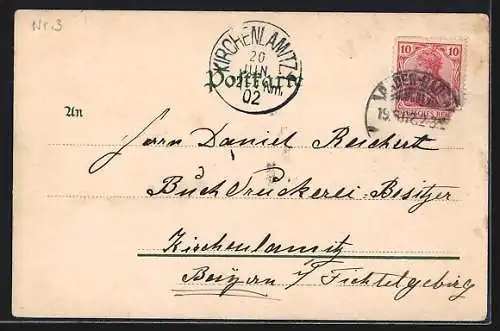 Nr. 3
KIRCHENLAMITZ
20
JUN
02
Postkarte
10 10
An
Herrn Daniel Reichert
BuchDruckerei-Besitzer
Kirchenlamitz
Bayern i/ Fichtelgebirg